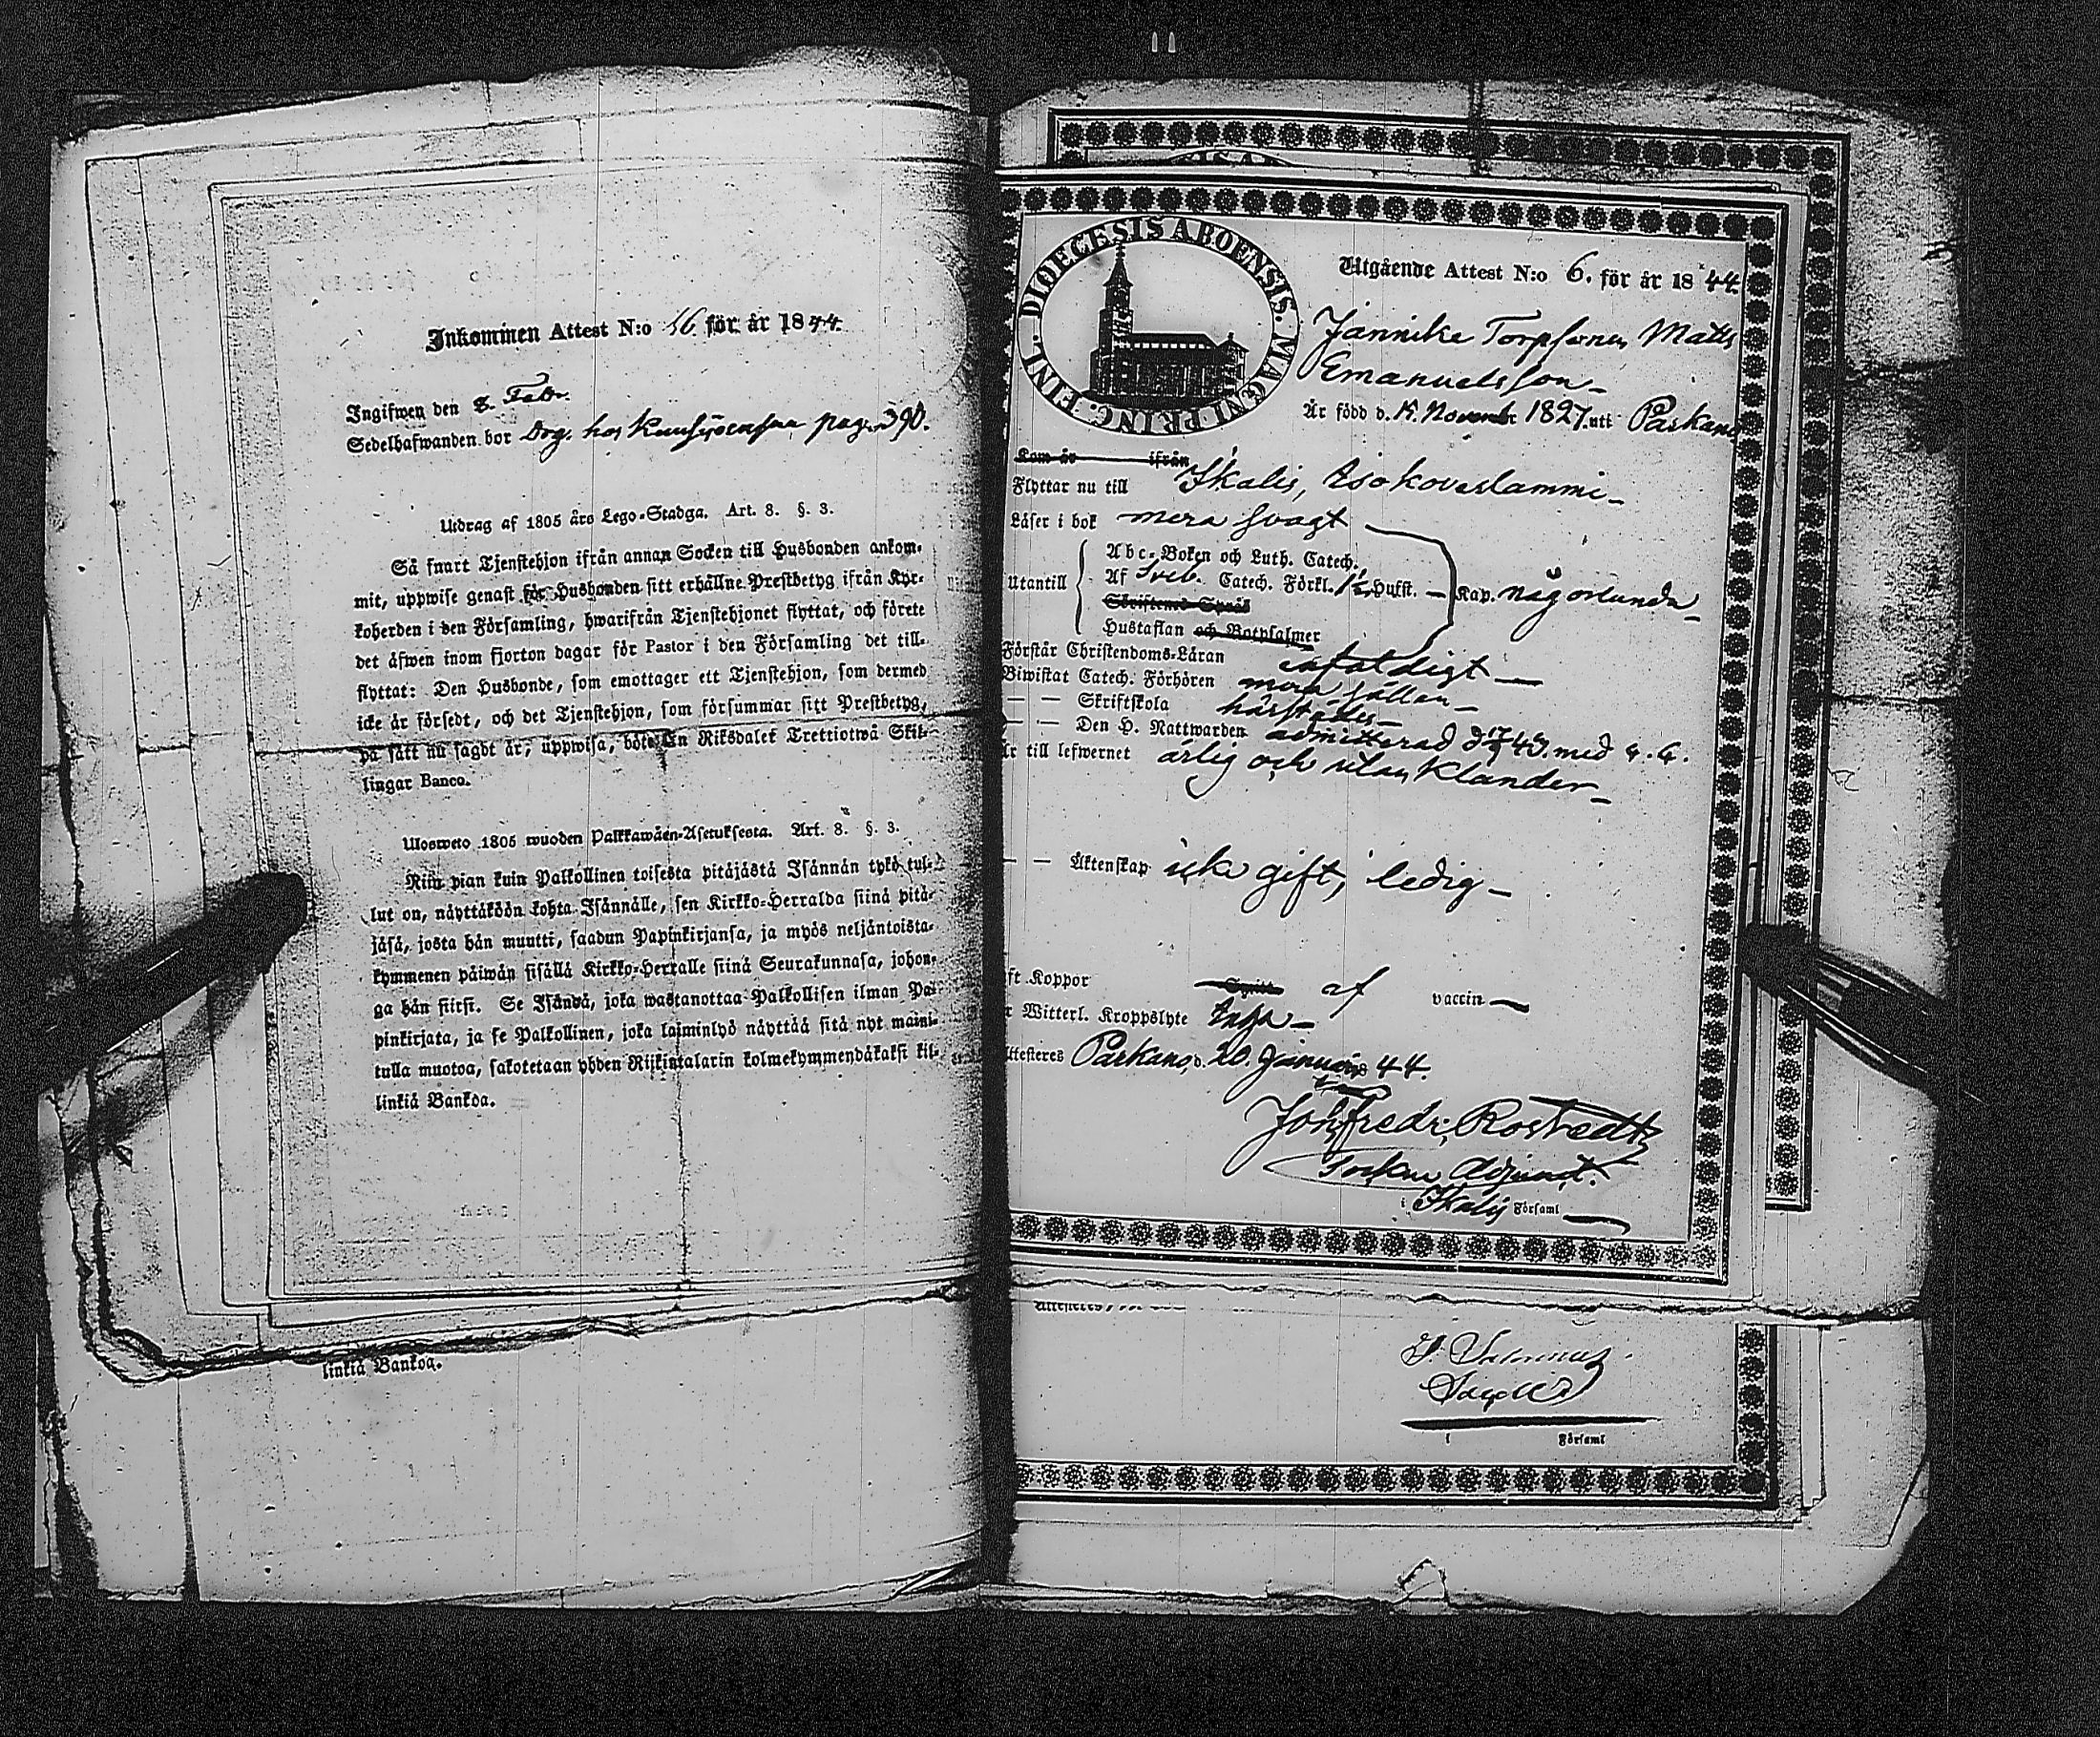 Inkommen Attest N:o 16. för år 1844
Ingifwen den 8. Febr.
Sedelhafwanden bor Drg. hos pag. 390.
Utdrag af 1805 års Lego-Stadga. Art. 8. §. 3.
Så snart Tjenstehjon ifrån annan Socken till Husbonden ankom-
mit, uppwise genast för Husbonden sitt erhållne Prestbetyg ifrån Kyr-
koherden i den Församling, hwarifrån Tjenstehjonet flyttat, och förete
det äfwen inom fjorton dagar för Pastor i den Församling det till-
flyttat: Den Husbonde, som emottager ett Tjenstehjon, som dermed
icke är försedt, och det Tjenstehjon, som försummar sitt Prestbetyg,
på sätt nu sagdt är, uppwisa, böte En Riksdaler Trettiotwå Skil-
lingar Banco.
Uloswето 1805 wuoden Palkkawäen-Asetuksesta. Art. 8. §. 3.
Niin pian kuin Palkollinen toisesta pitäjästä Isännän tykö tul-
lut on, näyttäköön kohta Isännälle, sen Kirkko-Herralda siinä pitä-
jäsä, josta hän muutti, saadun Papinkirjansa, ja myös neljäntoista-
kymmenen päiwän sisällä Kirkko-Herralle siinä Seurakunnasa, johon-
ga hän siirsi. Se Isändä, joka wastanottaa Palkollisen ilman Pa-
pinkirjata, ja se Palkollinen, joka laiminlyö näyttää sitä nyt maini-
tulla muotoa, sakotetaan yhden Riikintalarin kolmekymmendäkaksi kil-
linkiä Bankoa.
linkiä Bankoa.
FINL. DIOECESIS ABOENSIS. MAGNI PRINC.
Utgående Attest N:o 6. för år 1844.
Jannike Torpsonen Matts
Emanuelsson
Är född d. 15. November 1827. uti Parkano
Kom år ifrån
Flyttar nu till Ikalis,
Läser i bok mera svagt
Utantill Abc-Boken och Luth. Catech.
Af Sveb. Catech. Förkl. 1½ Hufst. — Kap. någorlunda
Skriftens Språk
Hustaflan och Botpsalmer
Förstår Christendoms-Läran enfaldigt
Biwistat Catech. Förhören mera sällan
— — Skriftskola härstädes
— — Den H. Nattwarden admitterad med
Är till lefwernet ärlig och utan klander
— — Äktenskap icke gift, ledig
ft Koppor af vaccin
r Witterl. Kroppslyte Inga
Attesteres Parkano, d. 20. Januarii 44.
Joh. Fredr. Rostedt
Socken Adjunct.
i Ikalis Församl
i Församl